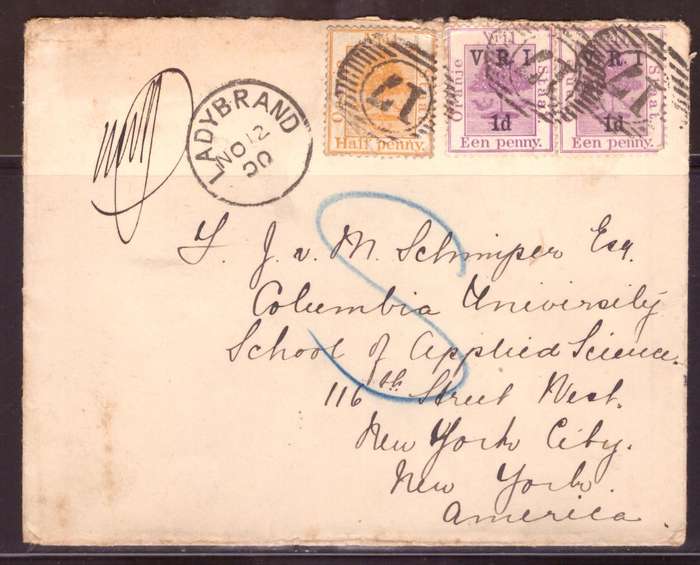 LADYBRAND
NO 12
00
Half penny.
17
V.R.I.
1d
Een penny.
V.R.I.
1d
Een penny.
17
J. v. M. Schimper Esq.
Columbia University
School of Applied Science.
116th Street West.
New York City.
New York.
America.
S